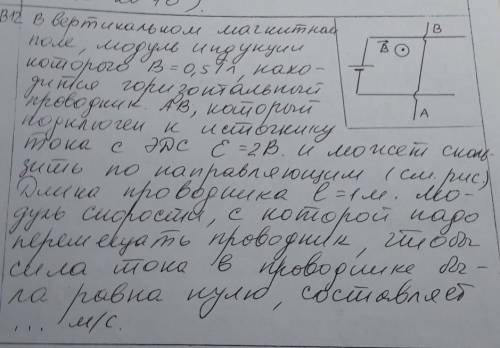 В12 В вертикальном магнитном
поле, модуль индукции
которого В = 0,5 Тл, нахо-
дится горизонтальный
проводник АВ, который
подключен к источнику
тока с ЭДС Ɛ = 2В. и может сколь-
зить по направляющим (см. рис)
Длина проводника l = 1м. Мо-
дуль скорости, с которой надо
перемещать проводник, чтобы
сила тока в проводнике бы-
ла равна нулю, составляет
... м/с.
B
B
A